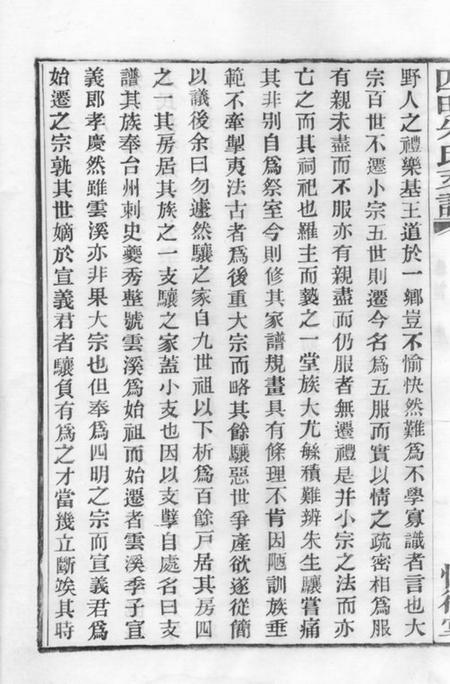 野人之禮樂基王道於一鄉豈不愉快然難為不學寡識者言也大
宗百世不遷小宗五世則遷今名為五服而實以情之疏密相為服
有親未盡而不服亦有親盡而仍服者無遷禮是并小宗之法而亦
亡之而其祠祀也羅主而褻之一堂族大尤緐積難辨朱生驤嘗痛
其非別自為祭室今則修其家譜規畫具有條理不肯因陋訓族垂
範不牽掣夷法古者為後重大宗而略其餘驤惡世爭產欲遂從簡
以議後余曰勿遽然驤之家自九世祖以下析為百餘戶居其房四
之一其房居其族之一支驤之家蓋小支也因以支孽自處名曰支
譜其族奉台州刺史夔秀整號雲溪為始祖而始遷者雲溪季子宣
義郎孝慶然雖雲溪亦非果大宗也但奉為四明之宗而宣義君為
始遷之宗孰其世嫡於宣義君者驤負有為之才當幾立斷竢其時